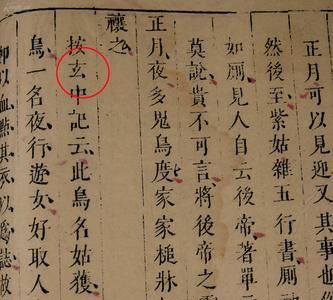 正月可以見迎又其事也
然後至紫姑雜五行書厠
如厠見人自云後帝著單
莫說貴不可言將後帝之
正月夜多鬼鳥度家家槌牀
禳之
按玄中記云此鳥名姑獲
鳥一名夜行遊女好取人
即以血點其衣以爲誌故